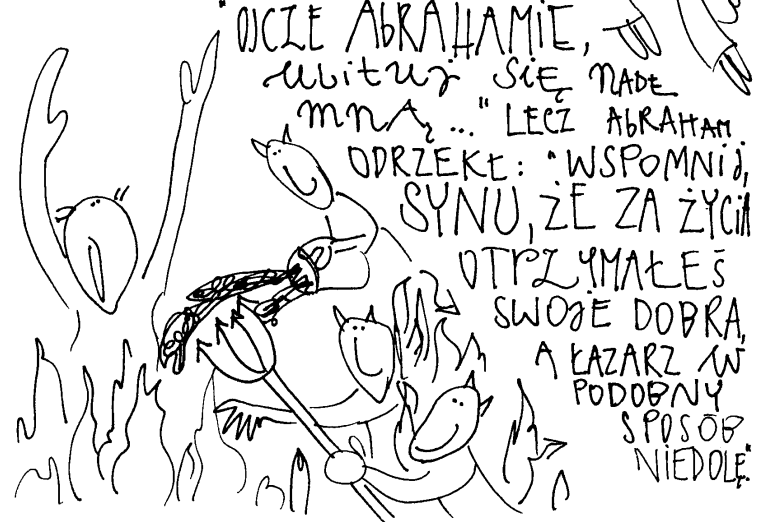 "OJCZE ABRAHAMIE,
ulituj SIĘ NADE
MNĄ..." LECZ ABRAHAM
ODRZEKŁ: "WSPOMNIJ,
SYNU, ŻE ZA ŻYCIA
OTRZYMAŁEŚ
SWOJE DOBRA,
A ŁAZARZ W
PODOBNY
SPOSÓB
NIEDOLĘ."